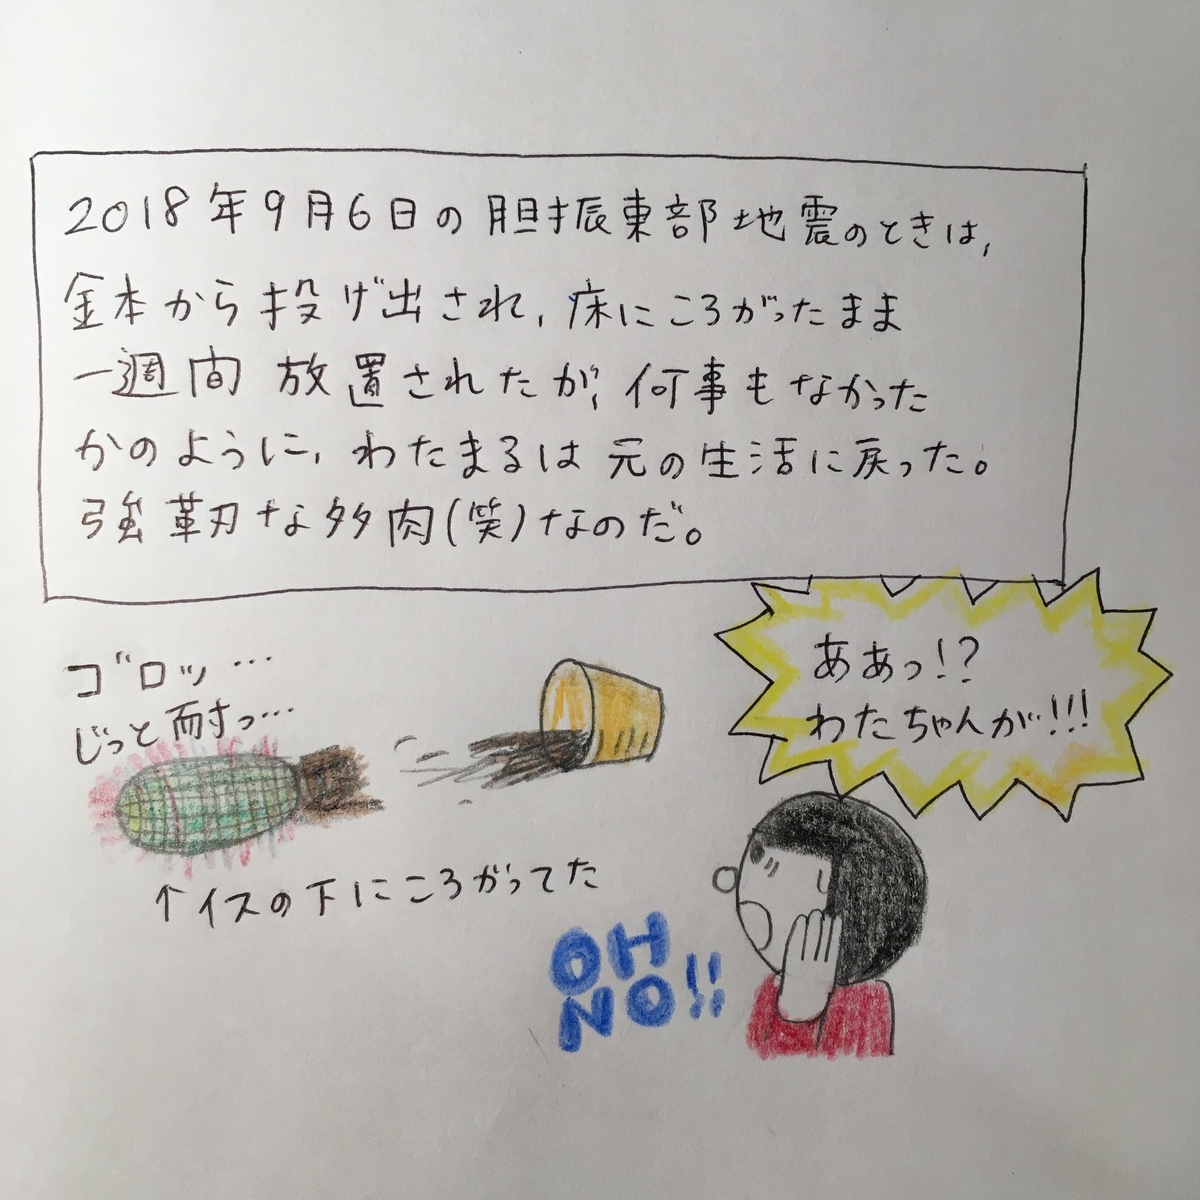 2018年9月6日の胆振東部地震のときは、
金本から投げ出され、床にころがったまま
一週間放置されたが、何事もなかった
かのように、わたまるは元の生活に戻った。
強革刃な多肉(笑)なのだ。
ああっ!?
わたちゃんが!!!
ゴロッ…
じっと耐っ…
↑イスの下にころがってた
OH
NO!!